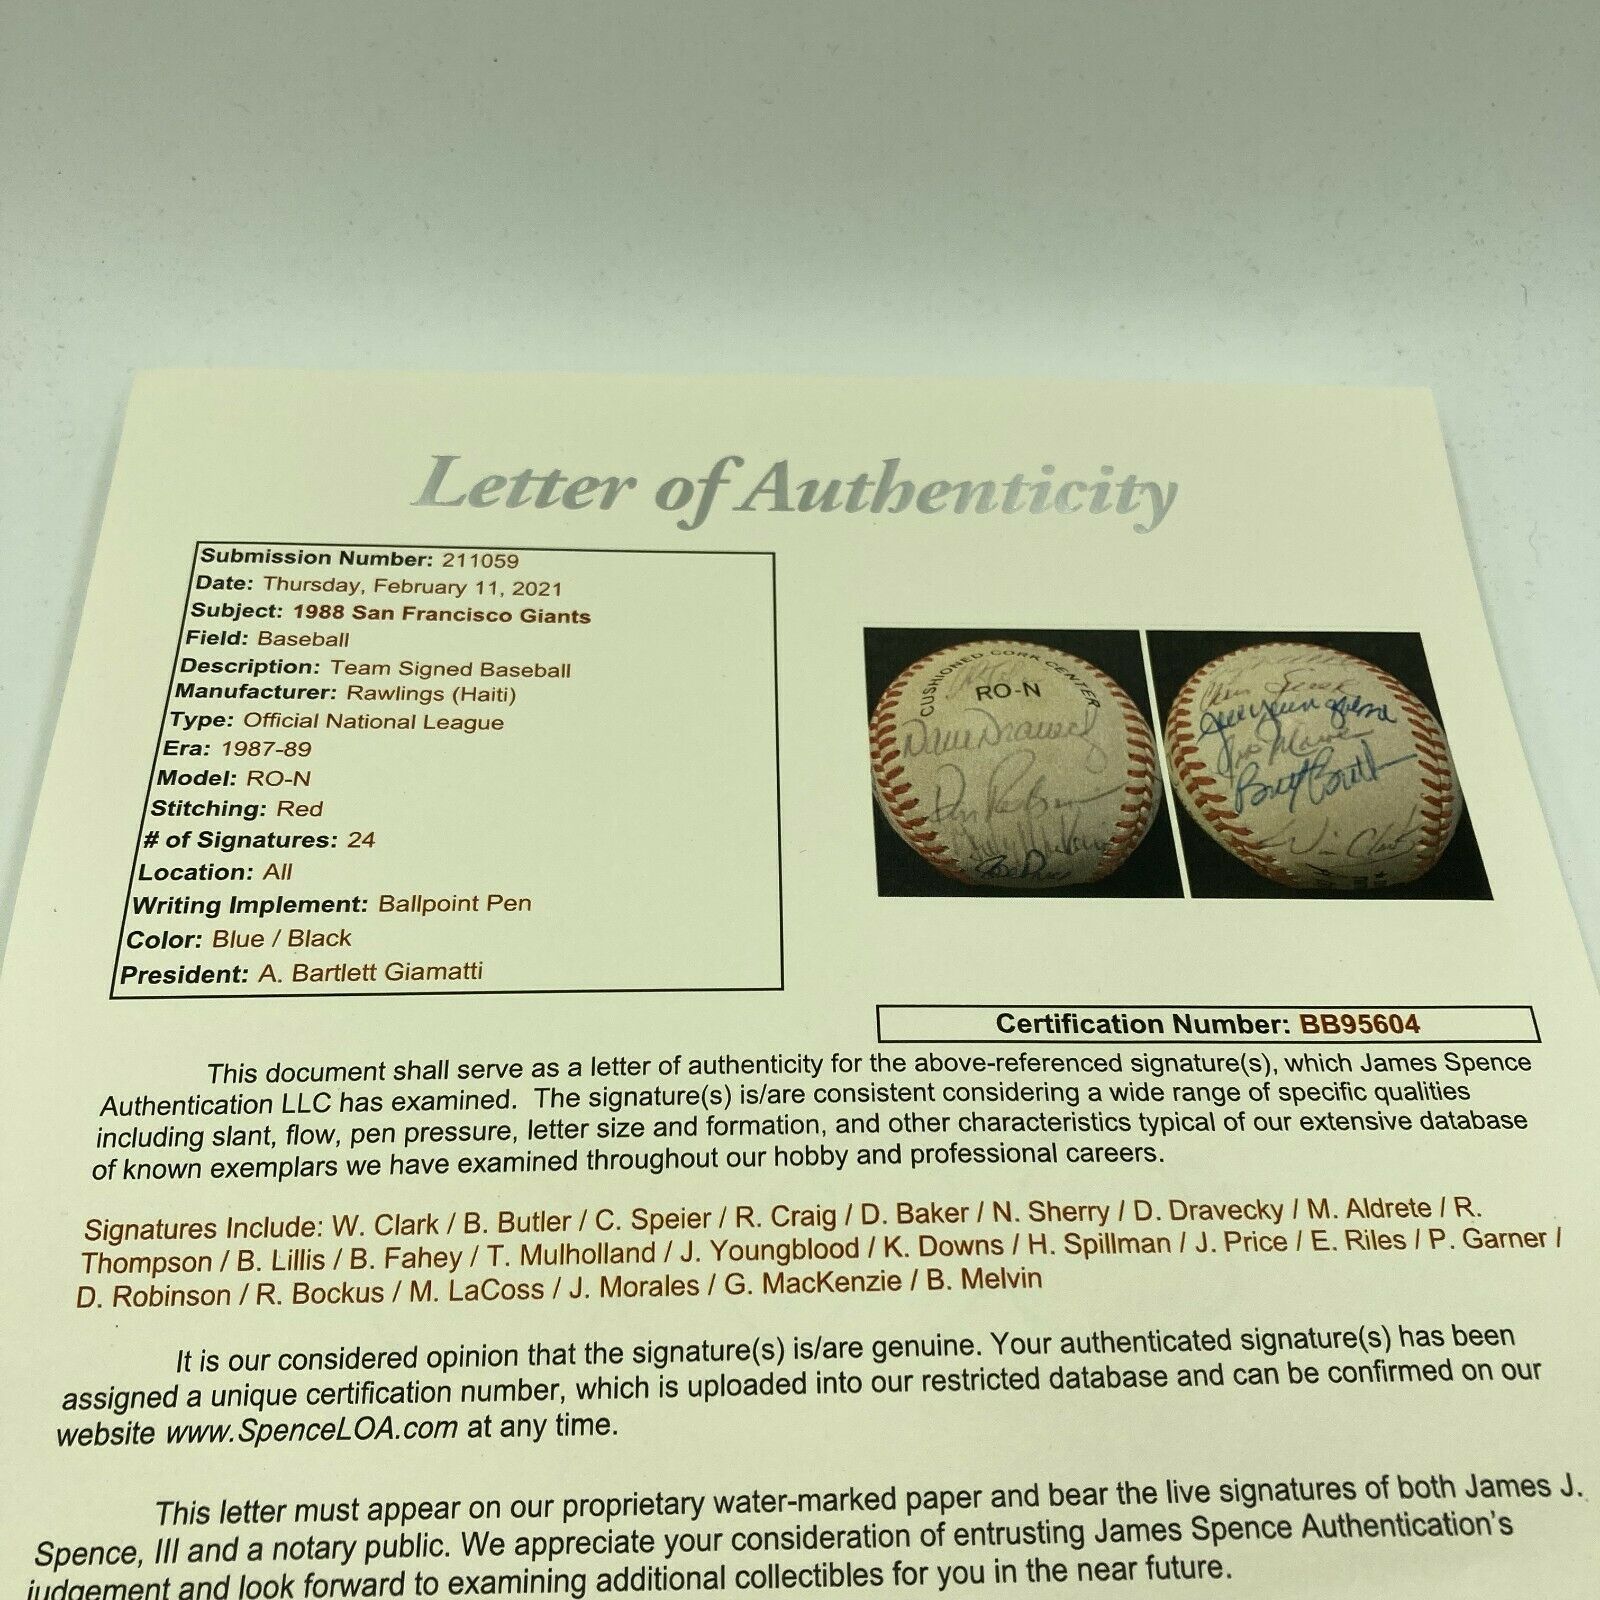 Letter of Authenticity
Submission Number: 211059
Date: Thursday, February 11, 2021
Subject: 1988 San Francisco Giants
Field: Baseball
Description: Team Signed Baseball
Manufacturer: Rawlings (Haiti)
Type: Official National League
Era: 1987-89
Model: RO-N
Stitching: Red
# of Signatures: 24
Location: All
Writing Implement: Ballpoint Pen
Color: Blue / Black
President: A. Bartlett Giamatti
CUSHIONED CORK CENTER
RO-N
Dave Dravecky
Don Robinson
Joe Price
Chris Speier
Joel Youngblood
Brett Butler
Will Clark
Certification Number: BB95604
This document shall serve as a letter of authenticity for the above-referenced signature(s), which James Spence
Authentication LLC has examined. The signature(s) is/are consistent considering a wide range of specific qualities
including slant, flow, pen pressure, letter size and formation, and other characteristics typical of our extensive database
of known exemplars we have examined throughout our hobby and professional careers.
Signatures Include: W. Clark / B. Butler / C. Speier / R. Craig / D. Baker / N. Sherry / D. Dravecky / M. Aldrete / R.
Thompson / B. Lillis / B. Fahey / T. Mulholland / J. Youngblood / K. Downs / H. Spillman / J. Price / E. Riles / P. Garner /
D. Robinson / R. Bockus / M. LaCoss / J. Morales / G. MacKenzie / B. Melvin
It is our considered opinion that the signature(s) is/are genuine. Your authenticated signature(s) has been
assigned a unique certification number, which is uploaded into our restricted database and can be confirmed on our
website www.SpenceLOA.com at any time.
This letter must appear on our proprietary water-marked paper and bear the live signatures of both James J.
Spence, III and a notary public. We appreciate your consideration of entrusting James Spence Authentication's
judgement and look forward to examining additional collectibles for you in the near future.